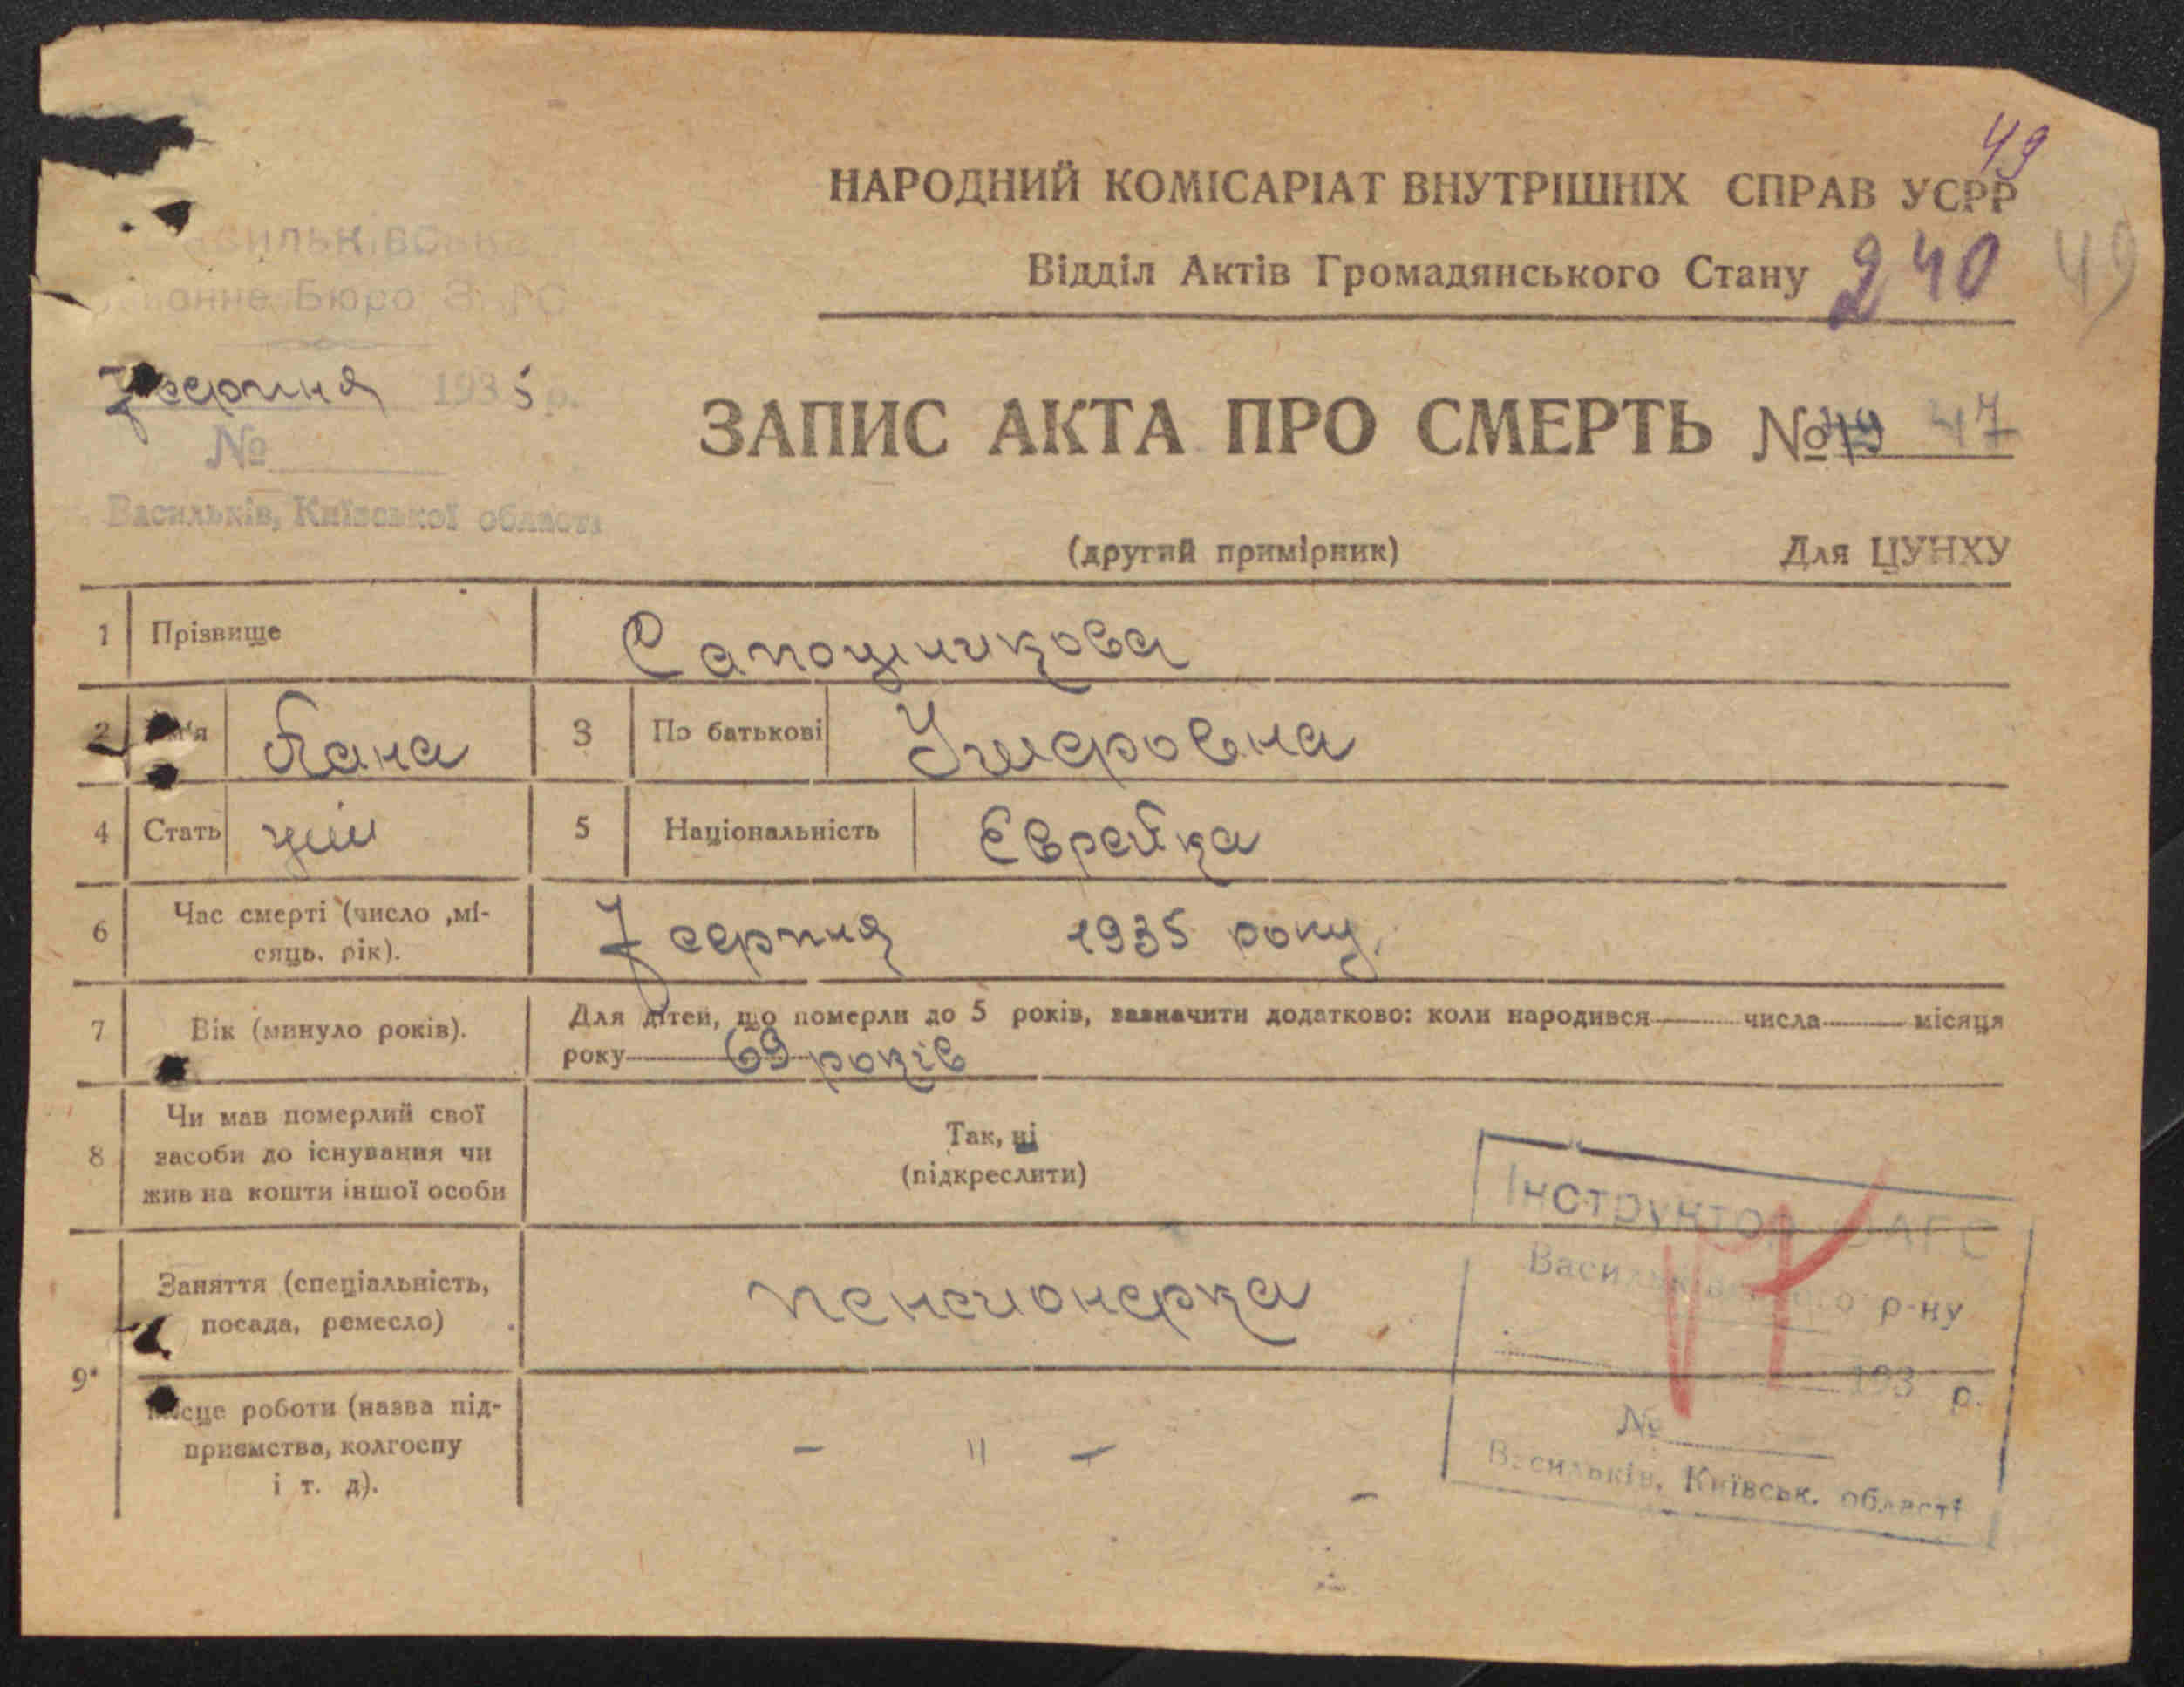 49
НАРОДНИЙ КОМІСАРІАТ ВНУТРІШНІХ СПРАВ УСРР
Відділ Актів Громадянського Стану 240 49
Бюро
7 серпня 1935 р.
№
Васильків, Київської області
ЗАПИС АКТА ПРО СМЕРТЬ № 49 47
(другий примірник) Для ЦУНХУ
1 Прізвище Сапошникова
2 Ім'я Хана 3 По батькові Ушеровна
4 Стать жін 5 Національність Еврейка
6 Час смерті (число ,мі-
сяць. рік). 7 серпня 1935 року.
7 Вік (минуло років). Для дітей, що померли до 5 років, зазначити додатково: коли народився числа місяця
року 69 років
8 Чи мав померлий свої
засоби до існування чи
жив на кошти іншої особи
Так, ні
(підкреслити)
9. Заняття (спеціальність,
посада, ремесло)
пенсионерка
Місце роботи (назва під-
приємства, колгоспу
і т. д).
- " -
Інструктор ЗАГС
Васильківського р-ну
193 р.
№
Васильків, Київськ. області